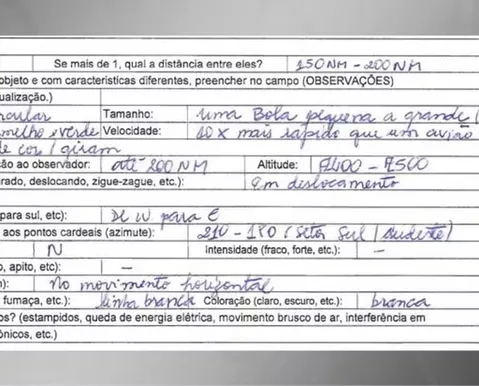 Se mais de 1, qual a distância entre eles? 150NM - 200NM
objeto e com características diferentes, preencher no campo (OBSERVAÇÕES)
ualização.)
rcular Tamanho: uma Bola pequena a grande /
melho e verde Velocidade: 10 x mais rápido que um avião
de cor / giram
ão ao observador: até 200NM Altitude: - 7500
arado, deslocando, zigue-zague, etc.): Em deslocamento
para sul, etc): De W para E
aos pontos cardeais (azimute): - 180 (Setor Sul /
N Intensidade (fraco, forte, etc.): -
o, apito, etc): -
): No movimento horizontal
fumaça, etc.): linha branca Coloração (claro, escuro, etc.): branca
os? (estampidos, queda de energia elétrica, movimento brusco de ar, interferência em
ônicos, etc.)